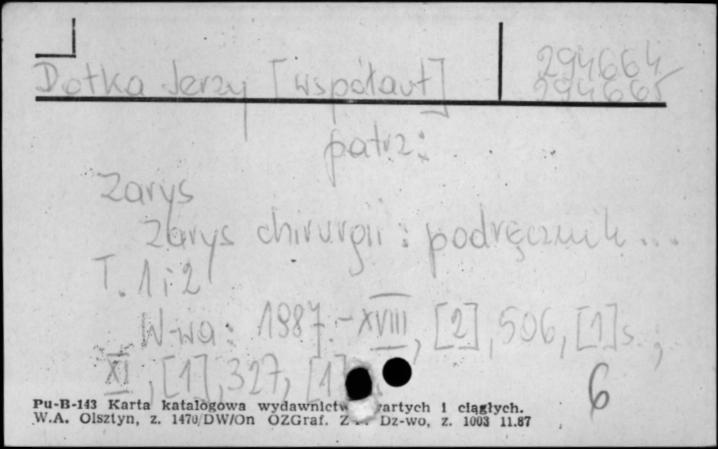 294664
Dotka Jerzy [współaut] 294665
patrz:
Zarys
Zarys chirurgii : podręcznik ...
T. 1 i 2
W-wa : 1987. - XVIII, [2], 506, [1] s. ;
XI, [1], 327, [1]
6
Pu-B-143 Karta katalogowa wydawnictw zwartych i ciągłych.
W.A. Olsztyn, z. 1470/DW/On OZGraf. Z Dz-wo, z. 1003 11.87